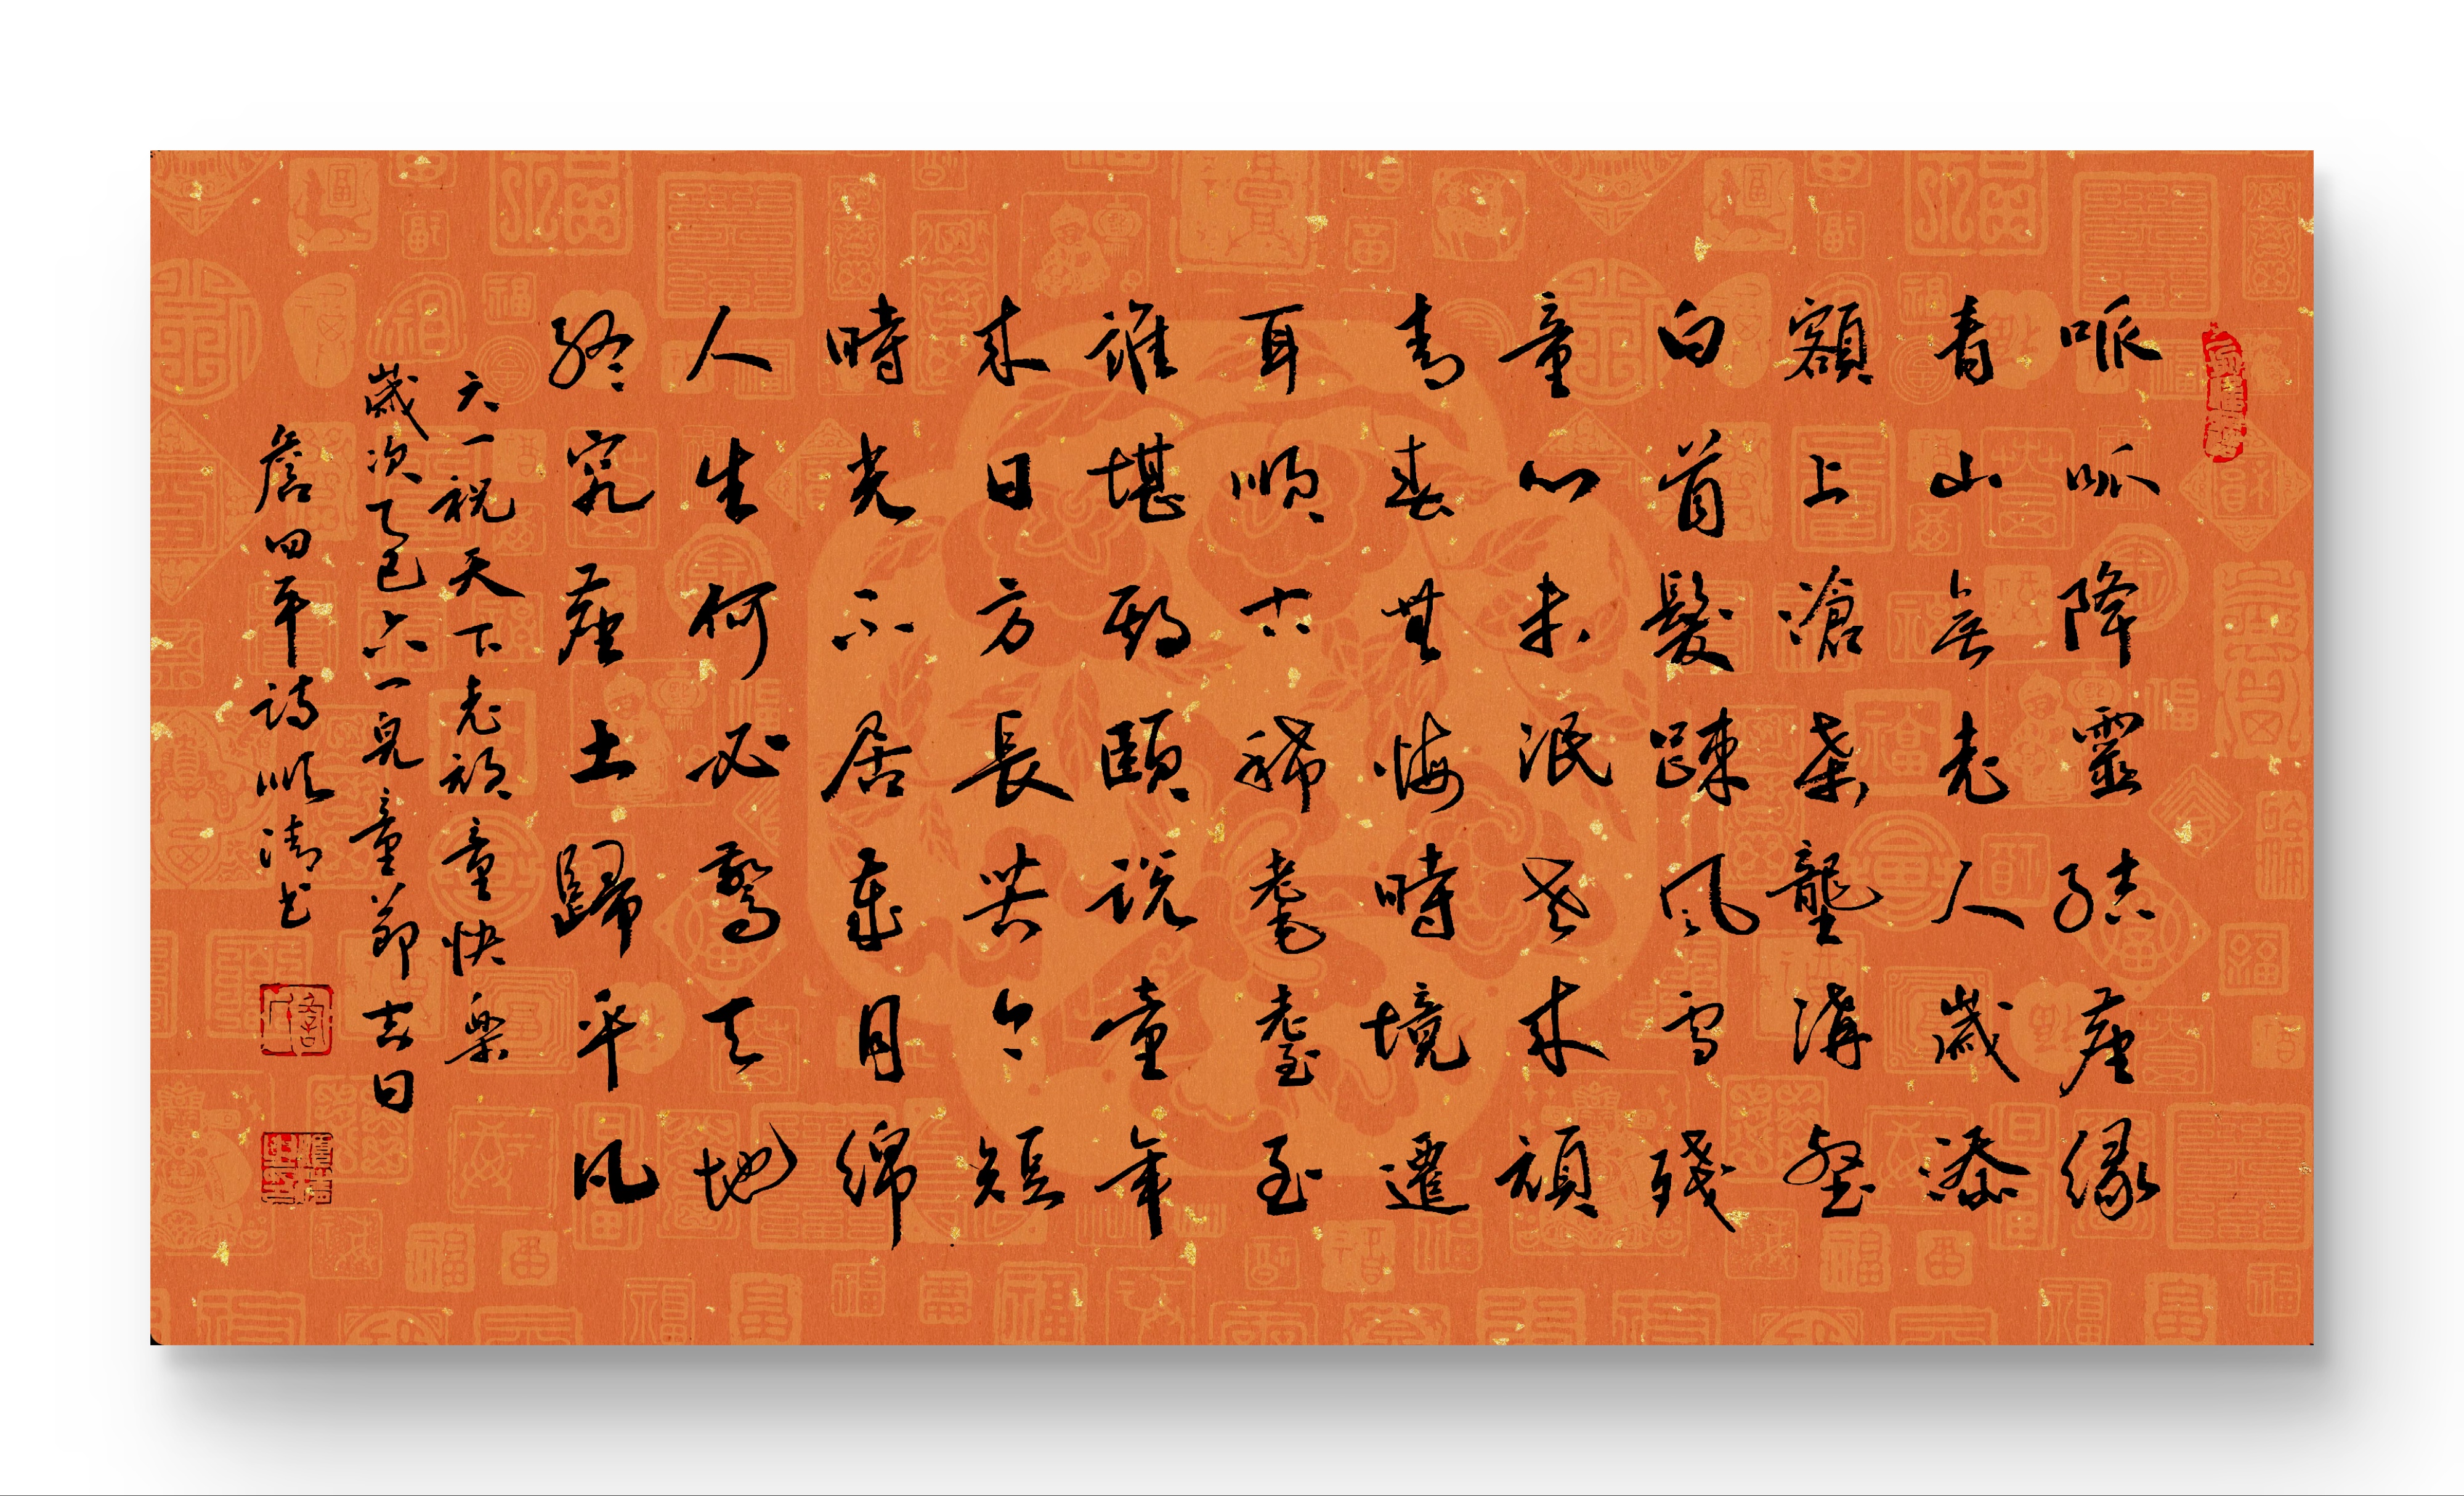 呱呱降靈結塵緣
青山無老人歲添
額上滄桑壟溝壑
白首髮疎風雪殘
童心未泯老來頑
青春無悔時境遷
耳順古稀耄耋至
誰堪期頤說童年
來日方長苦今短
時光不居歲月綿
人生何必驚天地
終究塵土歸平凡
六一祝天下老頑童快樂
歲次乙巳六一兒童節吉日
詹四平詩順清書